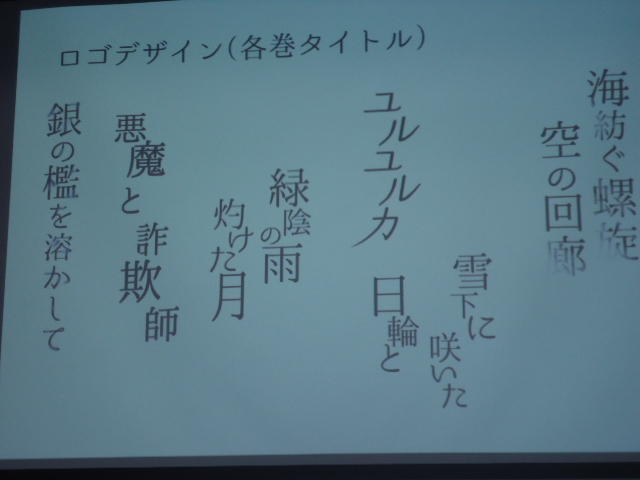 ロゴデザイン(各巻タイトル)
海紡ぐ螺旋
空の回廊
雪下に
咲いた
日輪と
ユルユルカ
緑陰の雨
灼けた月
悪魔と
詐欺師
銀の檻を溶かして